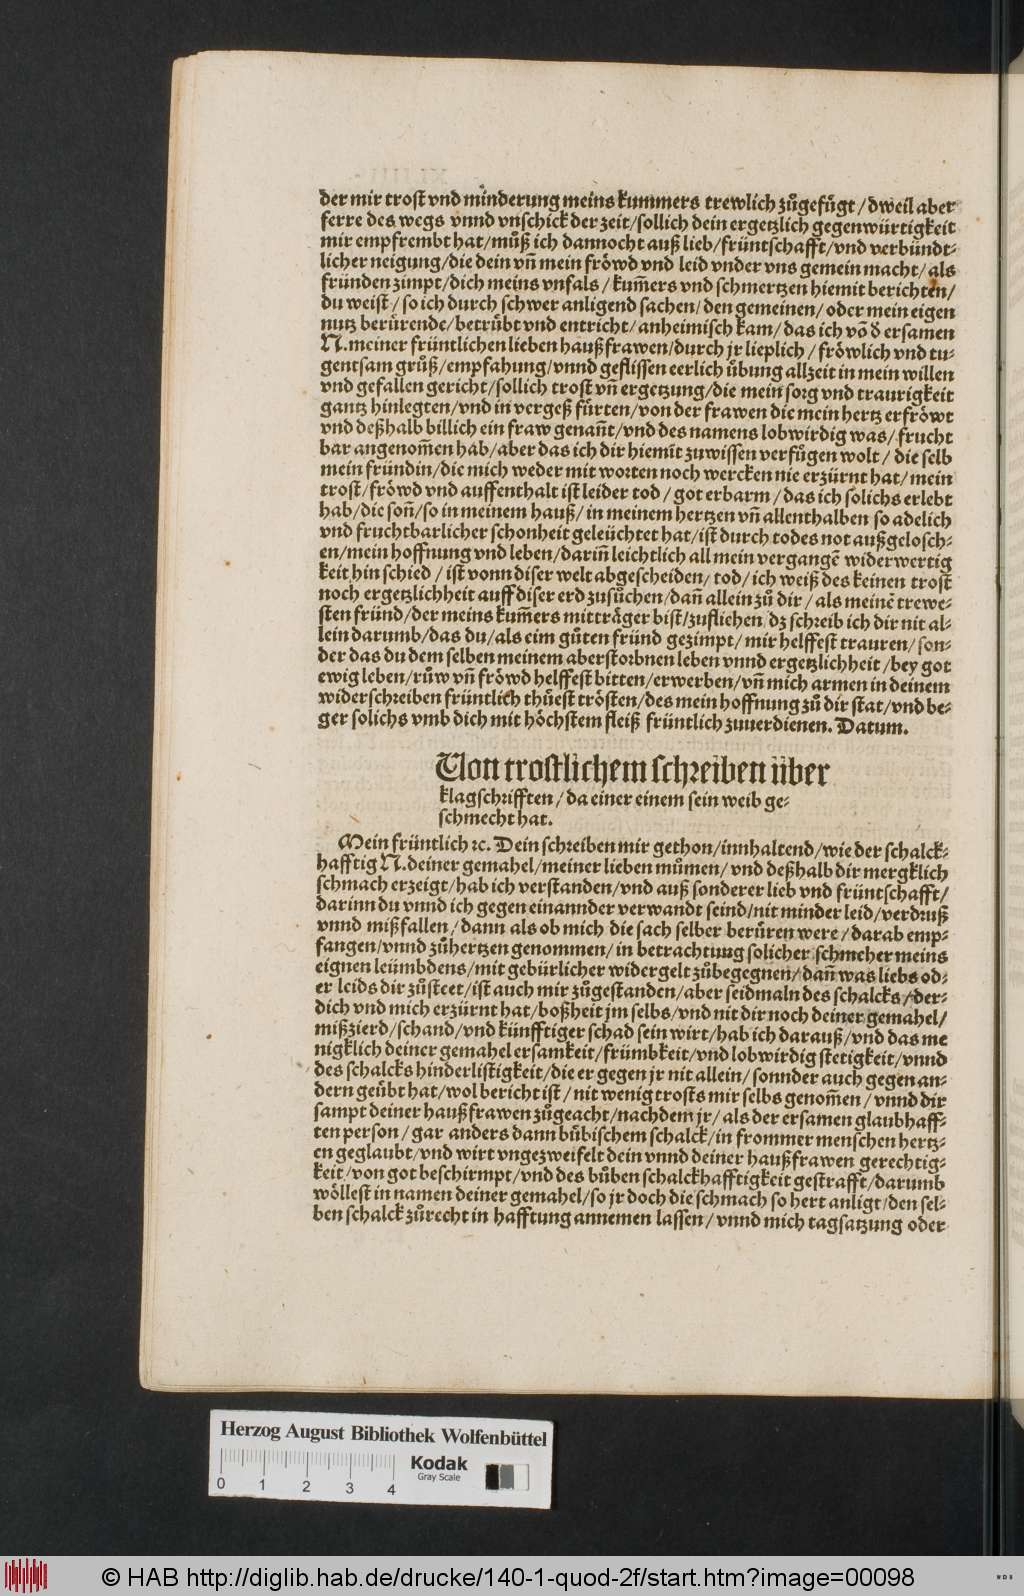 der mir trost vnd minderung meins kummers trewlich zůgefůgt / dweil aber
ferre des wegs vnnd vnschick der zeit/sollich dein ergetzlich gegenwürtigkeit
mir empfrembt hat/můß ich dannocht auß lieb/früntschafft/vnd verbündt-
licher neigung/die dein vñ mein frӧwd vnd leid vnder vns gemein macht/als
fründen zimpt/dich meins vnfals / kum̃ers vnd schmertzen hiemit berichten/
du weist / so ich durch schwer anligend sachen/den gemeinen/oder mein eigen
nutz berůrende/betrůbt vnd entricht/anheimisch kam/das ich võ d̕ ersamen
N.meiner früntlichen lieben haußfrawen/durch jr lieplich / frӧwlich vnd tu-
gentsam grůß/empfahung/vnnd geflissen eerlich ůbung allzeit in mein willen
vnd gefallen gericht/sollich trost vñ ergetzung/die mein sorg vnd traurigkeit
gantz hinlegten/vnd in vergeß fůrten/von der frawen die mein hertz erfrӧwt
vnd deßhalb billich ein fraw genañt/vnd des namens lobwirdig was/frucht
bar angenom̃en hab/aber das ich dir hiemit zuwissen verfůgen wolt / die selb
mein fründin/die mich weder mit worten noch wercken nie erzürnt hat/mein
trost/frӧwd vnd auffenthalt ist leider tod / got erbarm / das ich solichs erlebt
hab/die soñ/so in meinem hauß/ in meinem hertzen vñ allenthalben so adelich
vnd fruchtbarlicher schonheit geleüchtet hat/ist durch todes not außgelosch-
en/mein hoffnung vnd leben/dariñ leichtlich all mein vergangẽ widerwertig
keit hin schied / ist vonn diser welt abgescheiden/ tod/ich weiß des keinen trost
noch ergetzlichheit auff diser erd zusůchen/dañ allein zů dir / als meinẽ trewe-
sten fründ/der meins kum̃ers mitträger bist/zufliehen/dz schreib ich dir nit al-
lein darumb/das du/als eim gůten fründ gezimpt/mir helffest trauren/son-
der das du dem selben meinem aberstorbnen leben vnnd ergetzlichheit/bey got
ewig leben/růw vñ frӧwd helffest bitten/erwerben/vñ mich armen in deinem
widerschreiben früntlich thůest trӧsten/des mein hoffnung zů dir stat/vnd be-
ger solichs vmb dich mit hӧchstem fleiß früntlich zuuerdienen. Datum.
Von trostlichem schreiben über
klagschrifften / da einer einem sein weib ge-
schmecht hat.
Mein früntlich ꝛc. Dein schreiben mir gethon/innhaltend/wie der schalck-
hafftig N.deiner gemahel/meiner lieben můmen/vnd deßhalb dir mergklich
schmach erzeigt/hab ich verstanden/vnd auß sonderer lieb vnd früntschafft/
darinn du vnnd ich gegen einannder verwandt seind/nit minder leid/verdruß
vnnd mißfallen/dann als ob mich die sach selber berůren were / darab emp-
fangen/vnnd zůhertzen genommen/in betrachtung solicher schmeher meins
eignen leümbdens/mit gebürlicher widergelt zůbegegnen/dañ was liebs od-
er leids dir zůsteet/ist auch mir zůgestanden/aber seidmaln des schalcks/der-
dich vnd mich erzürnt hat/boßheit jm selbs/vnd nit dir noch deiner gemahel/
mißzierd/schand/vnd künfftiger schad sein wirt/hab ich darauß/vnd das me
nigklich deiner gemahel ersamkeit/frümbkeit/vnd lobwirdig stetigkeit/vnnd
des schalcks hinderlistigkeit/die er gegen jr nit allein/sonnder auch gegen an-
dern geůbt hat/wol bericht ist / nit wenig trosts mir selbs genom̃en / vnnd dir
sampt deiner haußfrawen zůgeacht/nachdem jr/als der ersamen glaubhaff-
ten person / gar anders dann bůbischem schalck/in frommer menschen hertz-
en geglaubt/vnd wirt vngezweifelt dein vnnd deiner haußfrawen gerechtig-
keit/von got beschirmpt/vnd des bůben schalckhafftigkeit gestrafft/darumb
wӧllest in namen deiner gemahel/so jr doch die schmach so hert anligt/den sel-
ben schalck zůrecht in hafftung annemen lassen/vnnd mich tagsatzung oder
Herzog August Bibliothek Wolfenbüttel
Kodak
Gray Scale
0 1 2 3 4
© HAB http://diglib.hab.de/drucke/140-1-quod-2f/start.htm?image=00098